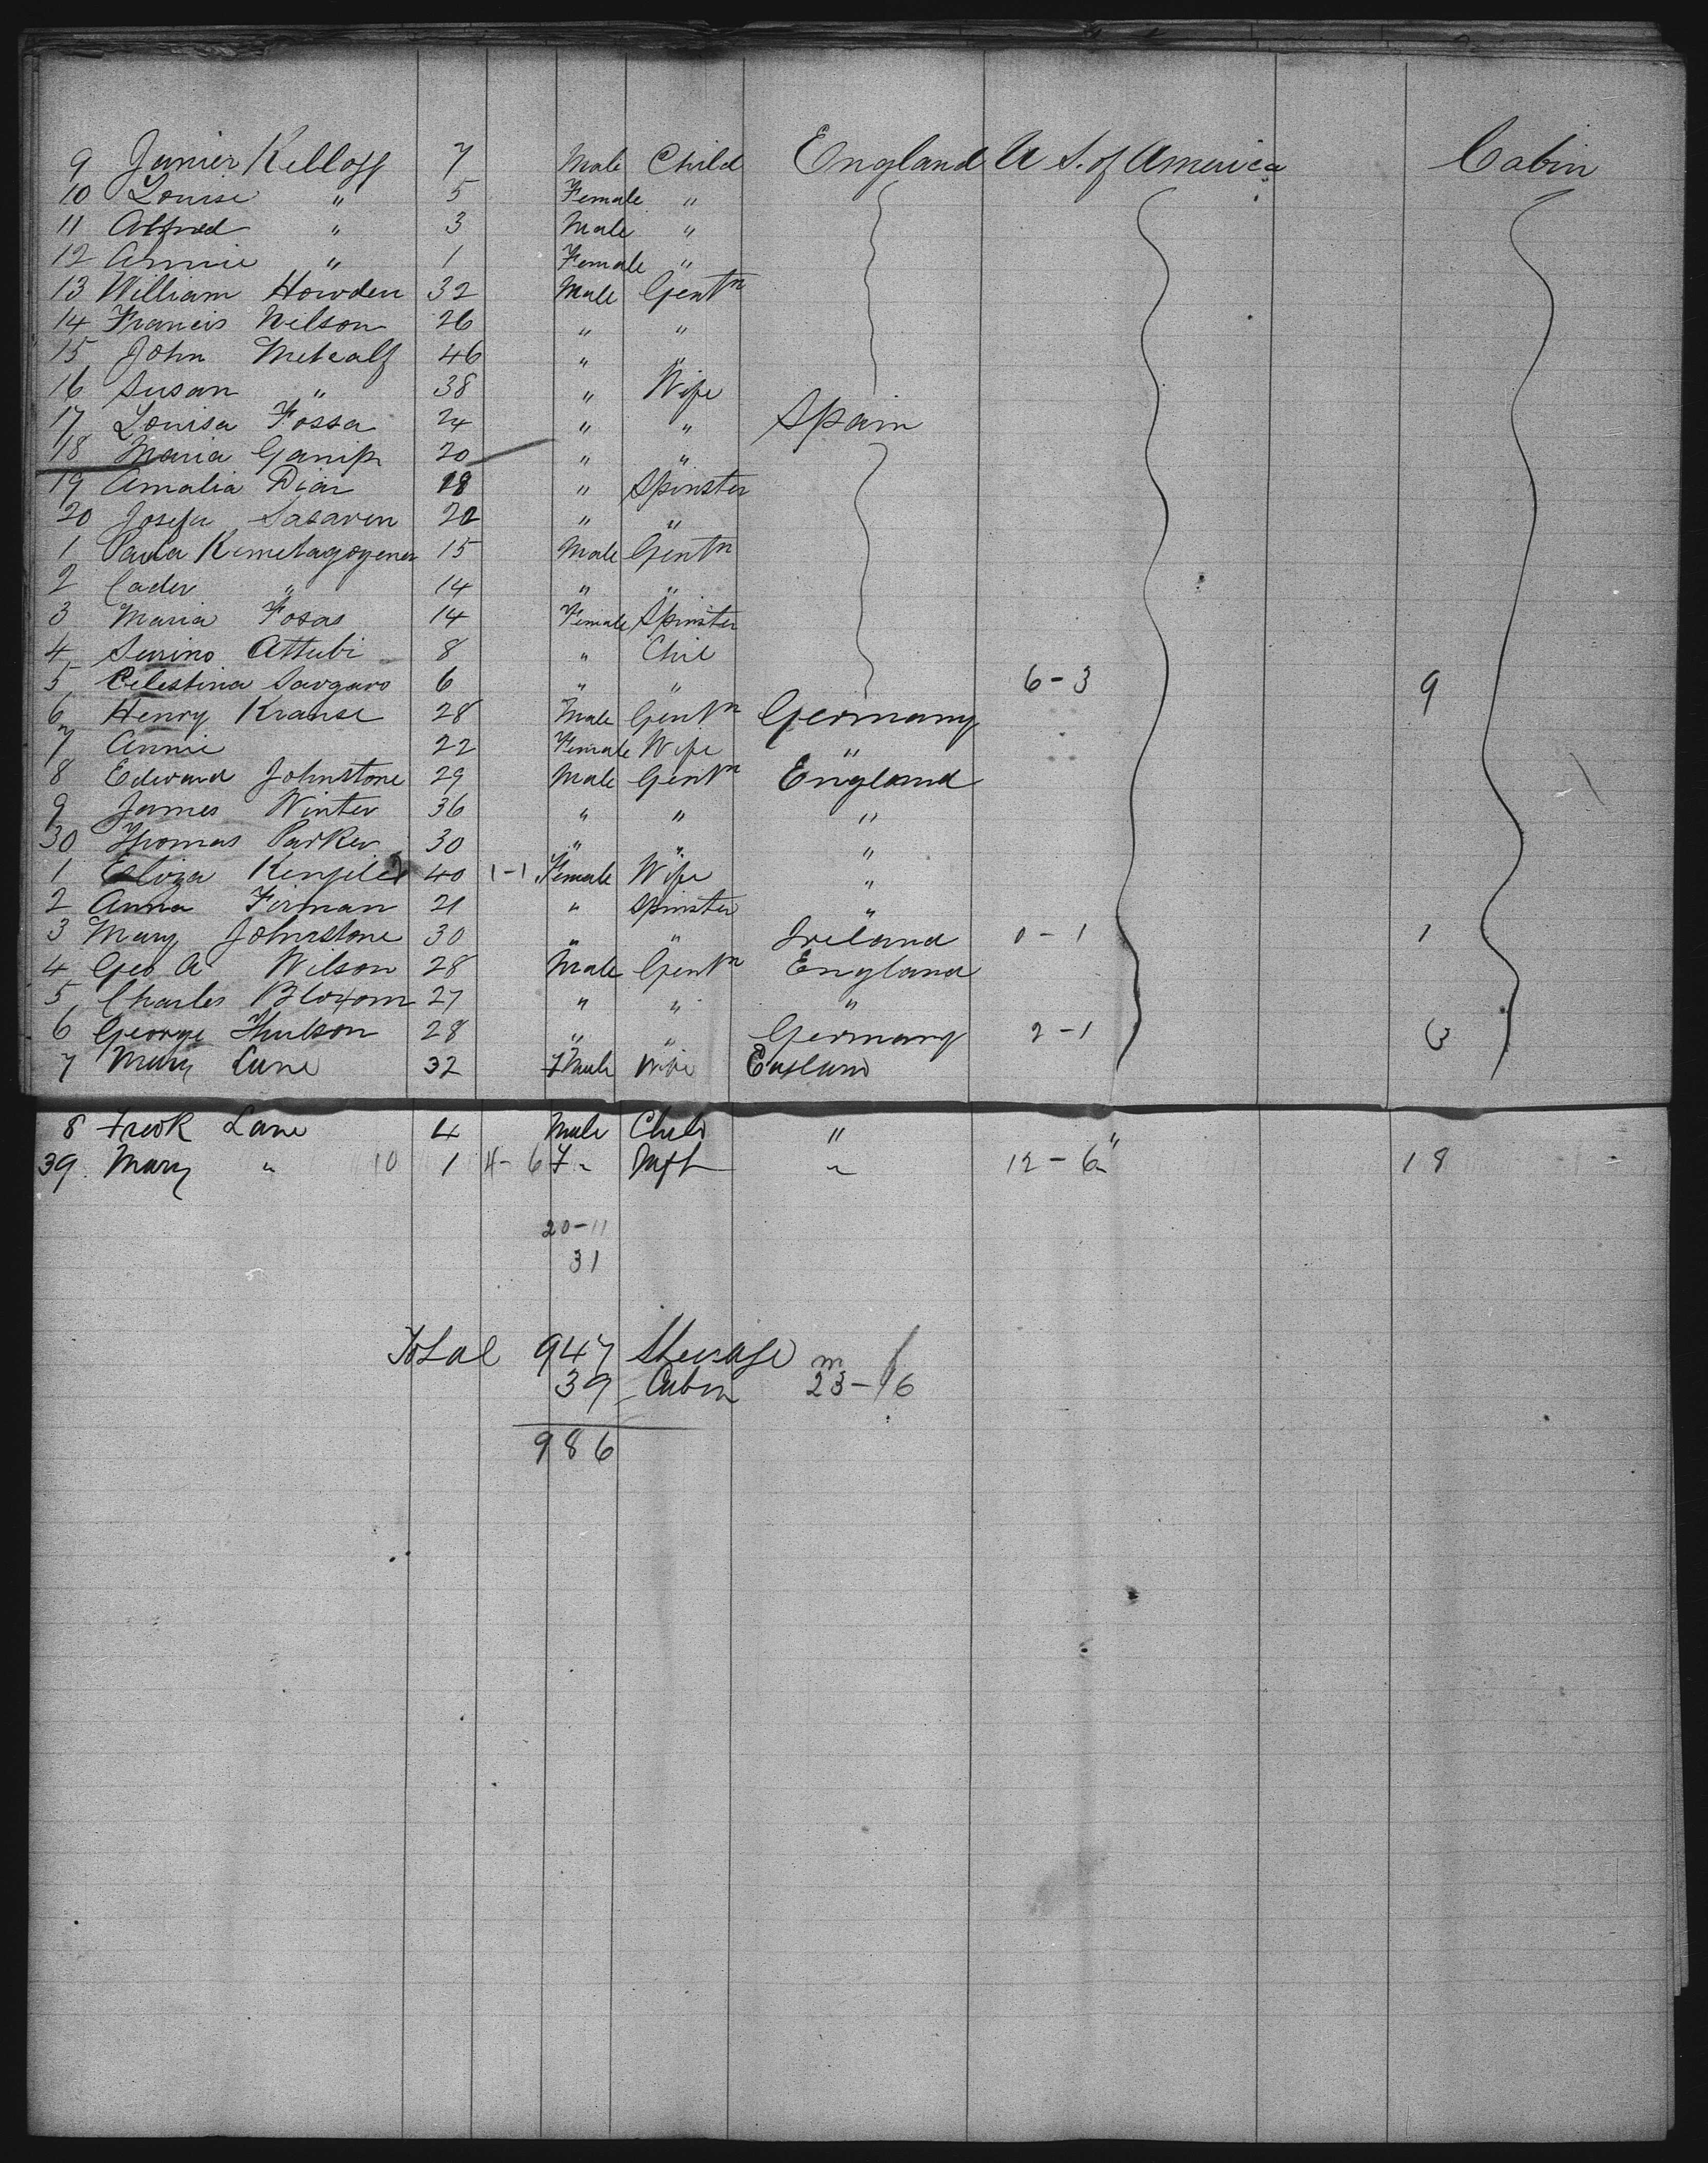 9 James Kellogg 7 Male Child England U S. of America Cabin
10 Louise " 5 Female "
11 Alfred " 3 Male "
12 Annie " 1 Female "
13 William Howden 32 Male Gentn
14 Francis Wilson 26 " "
15 John Metcalf 46 " "
16 Susan " 38 " Wife
17 Louisa Fossa 24 " " Spain
18 Maria 20 " "
19 Amalia Diar 18 " Spinster
20 Josefa 20 " "
1 Paula 15 Male Gentn
2 Cader " 14 " "
3 Maria Fosas 14 Female Spinster
4 Attubi 8 " Chil
5 Celestina 6 " " 6-3 9
6 Henry Kranse 28 Male Gentn Germany
7 Annie 22 Female Wife "
8 Edward Johnstone 29 Male Gentn England
9 James Winter 36 " " "
30 Thomas Parker 30 " " "
1 40 1-1 Female Wife "
2 Anna Firman 21 " Spinster "
3 Mary Johnstone 30 " " Ireland 0-1 1
4 Geo A Wilson 28 Male Gentn England
5 Charles Bloxom 27 " " "
6 George 28 " " Germany 2-1 3
7 Mary Lane 32 Female Wife England
8 Fredk Lane 4 Male Child " "
39 Mary " 10 1 4-6 F " Inft " 12-6 " 18
20-11
31
Total 947 Steerage
39 Cabin m 23-16 f
986